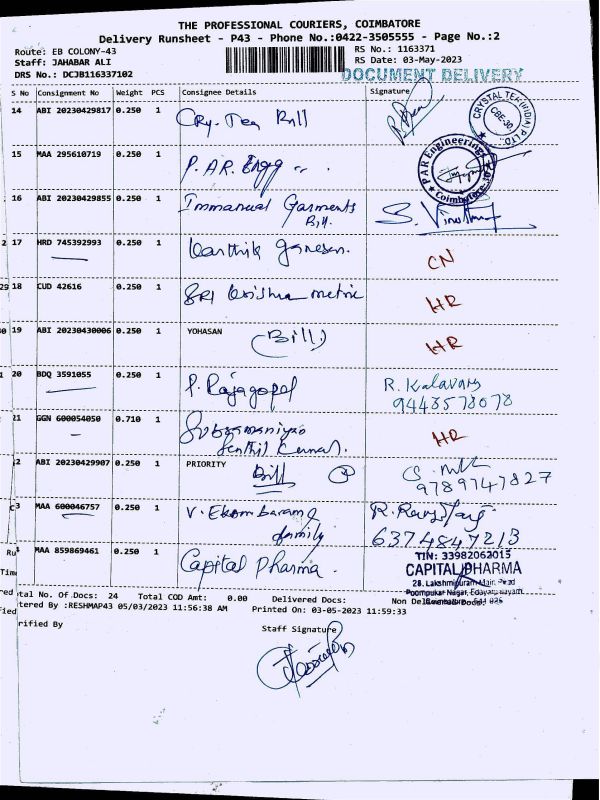 THE PROFESSIONAL COURIERS, COIMBATORE
Delivery Runsheet - P43 - Phone No.:0422-3505555 - Page No.:2
Route: EB COLONY-43
RS No.: 1163371
Staff: JAHABAR ALI
RS Date: 03-May-2023
DRS No.: DCJB116337102
DOCUMENT DELIVERY
S No Consignment No Weight PCS Consignee Details Signature
14 ABI 20230429817 0.250 1 Cry. Tea Bill
CRYSTAL TEA (INDIA) P LTD. CBE-30
15 MAA 295610719 0.250 1 P. AR. Engg
PAR Engineering Coimbatore
16 ABI 20230429855 0.250 1 Immanuel Garments
Bill.
2 17 HRD 745392993 0.250 1 Karthik Ganesan. CN
29 18 CUD 42616 0.250 1 SRI Krishna metric HR
0 19 ABI 20230430006 0.250 1 YOHASAN (Bill) HR
1 20 BDQ 3591055 0.250 1 P. Rajagopal R. Kalavary
9443578078
21 GGN 600054050 0.710 1 Subramaniyan HR
Senthil Kumar.
2 ABI 20230429907 0.250 1 PRIORITY
Bill
9789747827
3 MAA 600046757 0.250 1 V. Ekambaram
family
6374847213
MAA 859869461 0.250 1 Capital Pharma.
TIN: 33982062015
CAPITAL PHARMA
28, Lakshmipuram Main Road
Poompukar Nagar, Edayarpalayam
tal No. Of.Docs: 24 Total COD Amt: 0.00 Delivered Docs: Non Delivered Docs:
tered By :RESHMAP43 05/03/2023 11:56:38 AM Printed On: 03-05-2023 11:59:33
rified By
Staff Signature